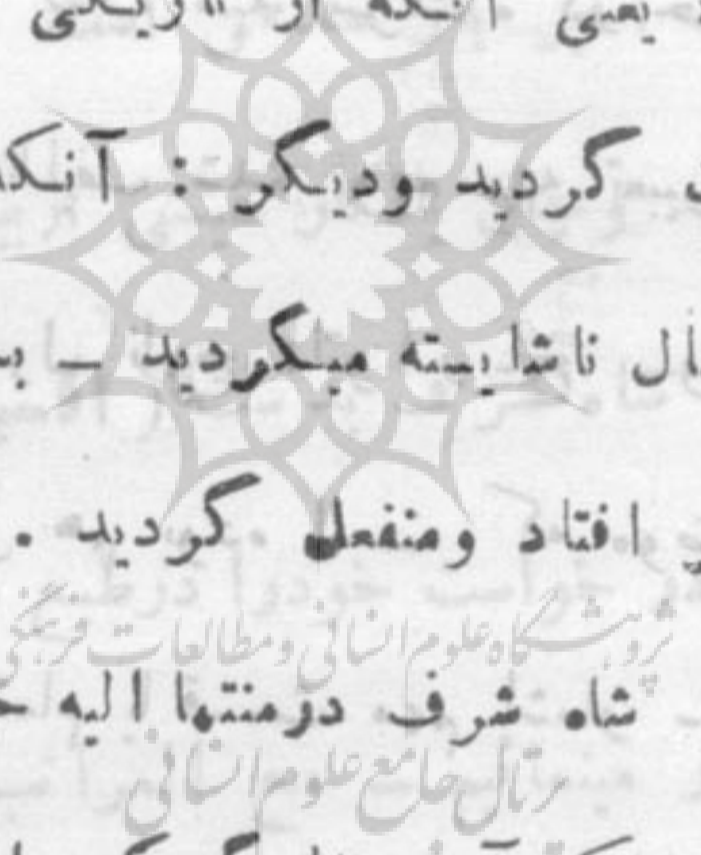 یعنی آنکه از تاریکی
گردید ودیگر : آنکه
ناشایسته میگردید –
افتاد ومنفعل گردید .
پژوهشگاه علوم انسانی و مطالعات فرهنگی
شاه شرف درمنتها الیه
پرتال جامع علوم انسانی